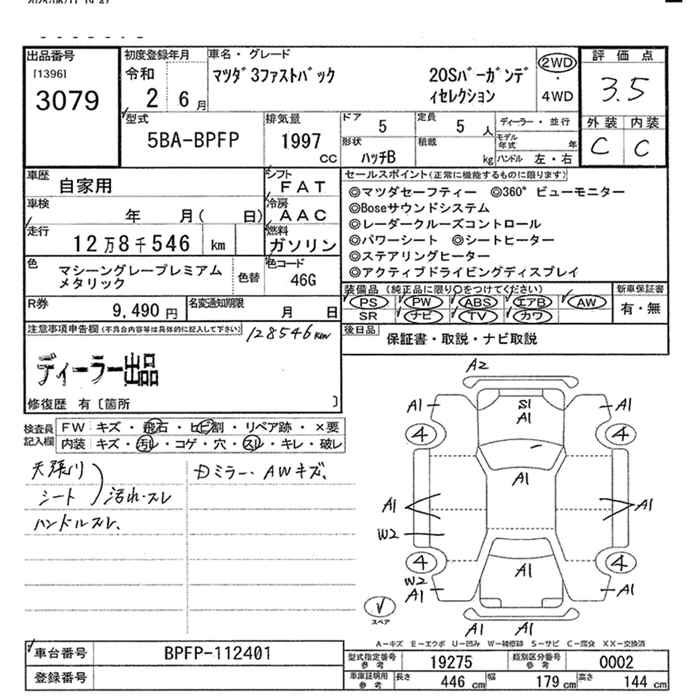 出品番号
[1396]
3079
初度登録年月
令和
2 6月
車名・グレード
マツダ3ファストバック
20Sバーガンデ
ィセレクション
2WD
4WD
評価点
3.5
外装 内装
C C
型式
5BA-BPFP
排気量
1997
cc
ドア
5
定員
5 人
形状
ハッチB
積載
kg
ディーラー・並行
モデル年式 年
ハンドル 左・右
車歴
自家用
シフト
FAT
車検
年 月( 日)
冷房
AAC
走行
12万8千546 km
燃料
ガソリン
色
マシーングレープレミアム
メタリック
色替
色コード
46G
R券
9,490 円
名変通知期限
月 日
セールスポイント(正常に機能するものに限ります)
◎マツダセーフティー ◎360°ビューモニター
◎Boseサウンドシステム
◎レーダークルーズコントロール
◎パワーシート ◎シートヒーター
◎ステアリングヒーター
◎アクティブドライビングディスプレイ
装備品(純正品に限り○をつけてください)
PS PW ABS エアB AW
SR ナビ TV カワ
新車保証書
有・無
後日品
保証書・取説・ナビ取説
注意事項申告欄(不具合内容等は具体的に記入して下さい)
128546km
ディーラー出品
修復歴 有〔箇所 〕
検査員
記入欄
FW キズ・飛石・ヒビ割・リペア跡・×要
内装 キズ・汚レ・コゲ・穴・スレ・キレ・破レ
天張り
シート
汚れ・スレ
ハンドルスレ、
Dミラー・AWキズ、
A2
A1
S1
A1
A1
4
4
A1
A1
A1
W2
4
4
W2
A1
A1
A1
A1
A1
スペア
A−キズ E−エクボ U−凹み W−補修跡 S−サビ C−腐食 XX−交換済
車台番号
BPFP-112401
登録番号
型式指定番号
参考
19275
類別区分番号
参考
0002
車庫証明用
参考
長さ
446 cm
幅
179 cm
高さ
144 cm